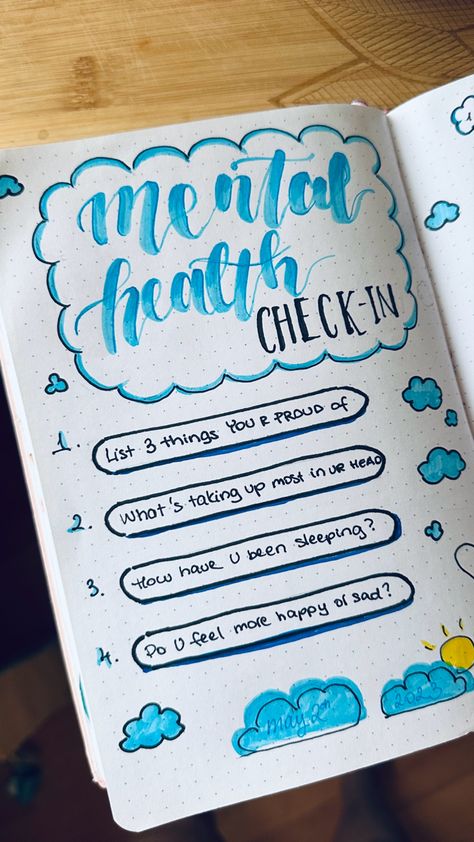 mental
health
CHECK-IN
1. List 3 things YOU R PROUD OF
2. What's taking up most in UR HEAD
3. How have U been sleeping?
4. Do U feel more happy or sad?
may 2nd